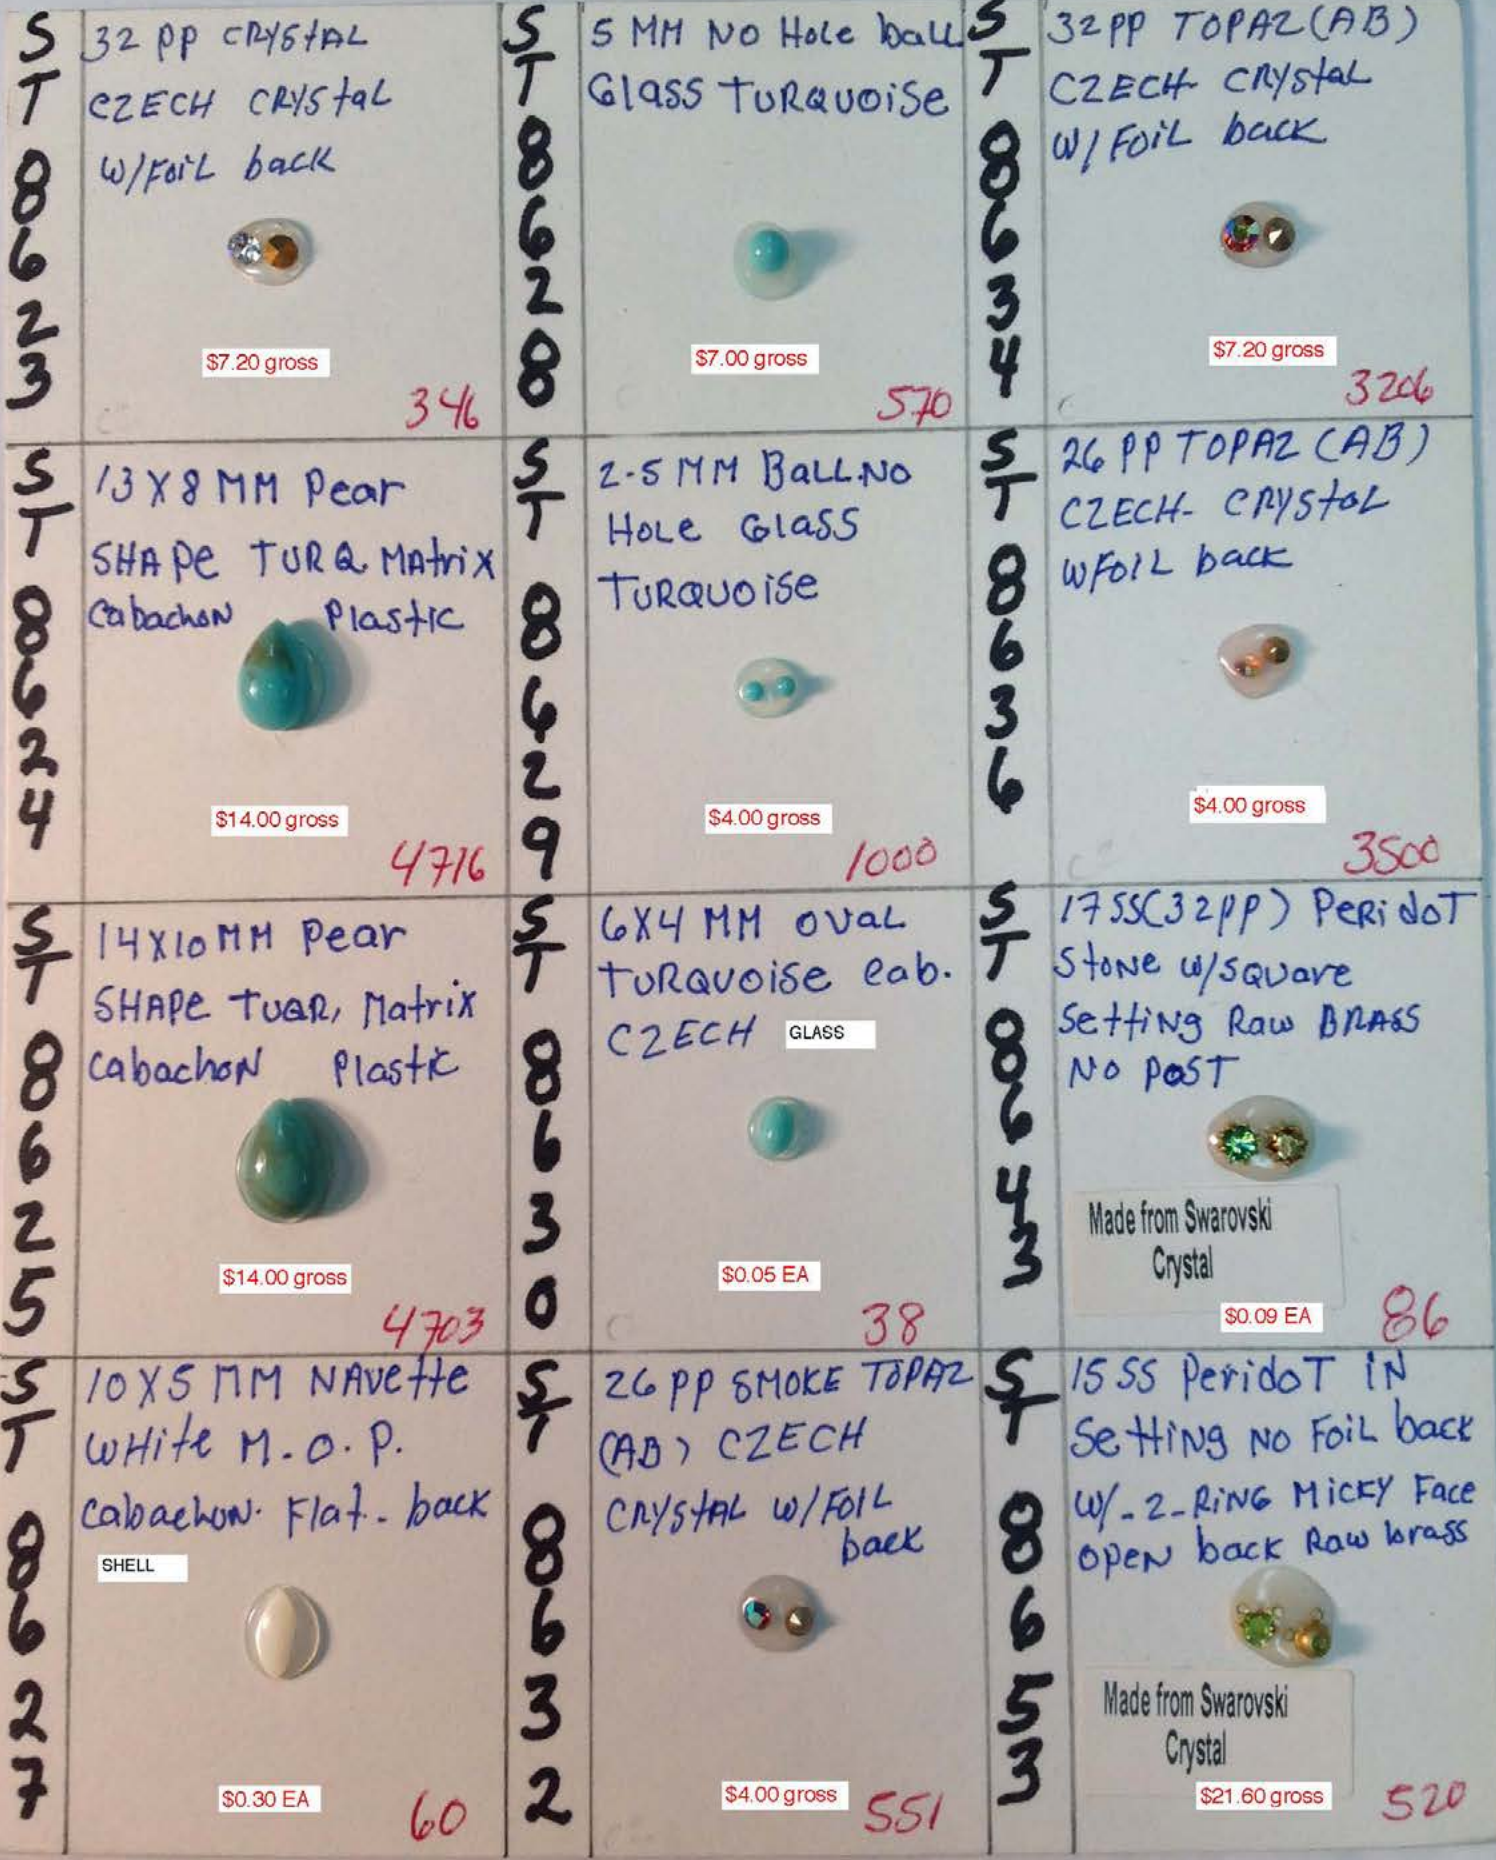 ST 8623
32 PP CRYSTAL
CZECH CRYStaL
W/FoiL back
$7.20 gross
346
ST 8628
5 MM No Hole ball
Glass TURQUOiSe
$7.00 gross
570
ST 8634
32PP TOPAZ (AB)
CZECH- CRYStaL
W/FOiL back
$7.20 gross
3206
ST 8624
13 X 8 MM Pear
SHAPe TURQ MAtriX
CabachoN Plastic
$14.00 gross
4716
ST 8629
2-5 MM BaLL.No
HoLe Glass
TURQUOiSe
$4.00 gross
1000
ST 8636
26 PP TOPAZ (AB)
CZECH- CRYStaL
WFOIL back
$4.00 gross
3500
ST 8625
14X10 MM Pear
SHAPe TUQR, Matrix
CabachoN Plastic
$14.00 gross
4703
ST 8630
6X4 MM OVaL
TURQUOiSe cab.
CZECH GLASS
$0.05 EA
38
ST 8643
17SS(32PP) PeRidoT
StoNe w/square
SettiNg Raw BRASS
No PosT
Made from Swarovski
Crystal
$0.09 EA
86
ST 8627
10 X 5 MM NAvette
WHite M.O.P.
Cabachon. Flat-back
SHELL
$0.30 EA
60
ST 8632
26 PP SMOKE TOPAZ
(AB) CZECH
CRYStAL W/FOIL
back
$4.00 gross
551
ST 8653
15 SS PeridoT iN
SettiNg No FoiL back
W/-2-RiNG MicKY Face
OPEN back Raw brass
Made from Swarovski
Crystal
$21.60 gross
520